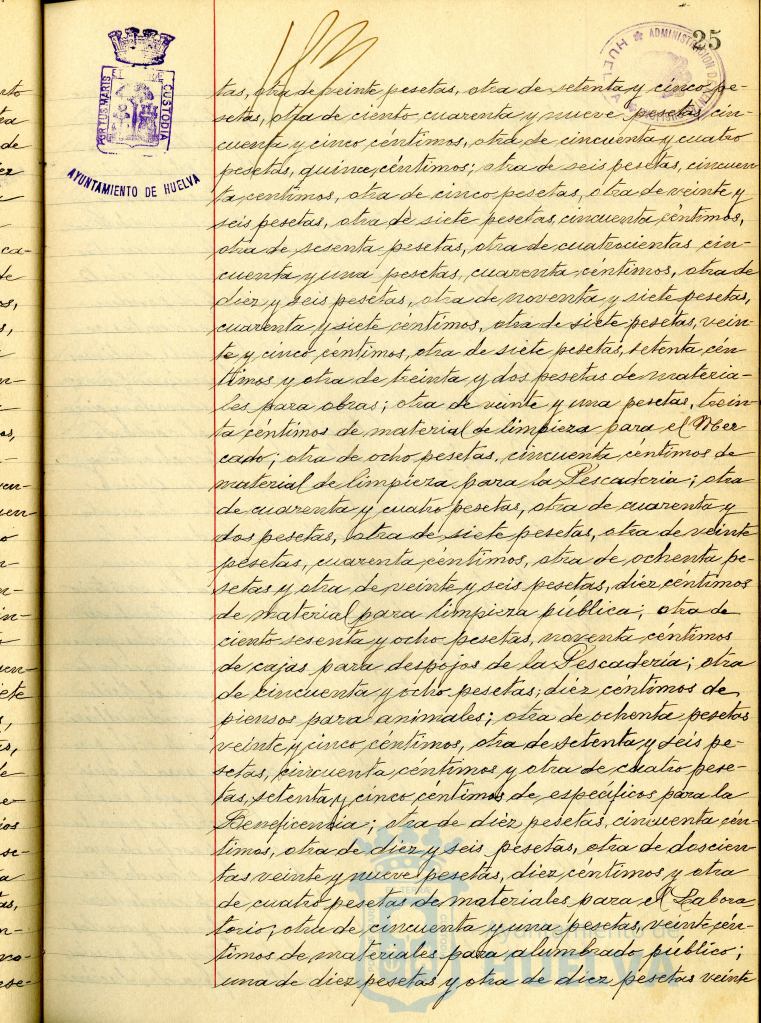 25
ADMINISTRACION DE
HUELVA
PORTUS MARIS
CUSTODIA
AYUNTAMIENTO DE HUELVA
tas, otra de veinte pesetas, otra de setenta y cinco pe-
setas, otra de ciento cuarenta y nueve pesetas cin-
cuenta y cinco céntimos, otra de cincuenta y cuatro
pesetas, quince céntimos; otra de seis pesetas, cincuen
ta centimos, otra de cinco pesetas, otra de veinte y
seis pesetas, otra de siete pesetas, cincuenta céntimos,
otra de sesenta pesetas, otra de cuatrocientas cin-
cuenta y una pesetas, cuarenta céntimos, otra de
diez y seis pesetas, otra de noventa y siete pesetas,
cuarenta y siete céntimos, otra de siete pesetas, vein-
te y cinco céntimos, otra de siete pesetas, setenta cén
timos y otra de treinta y dos pesetas de materia-
les para obras; otra de veinte y una pesetas, trein-
ta céntimos de material de limpieza para el Mer-
cado; otra de ocho pesetas, cincuenta céntimos de
material de limpieza para la Pescaderia; otra
de cuarenta y cuatro pesetas, otra de cuarenta y
dos pesetas, otra de siete pesetas, otra de veinte
pesetas, cuarenta céntimos, otra de ochenta pe-
setas y otra de veinte y seis pesetas, diez céntimos
de material para limpieza publica; otra de
ciento sesenta y ocho pesetas, noventa céntimos
de cajas para despojos de la Pescadería; otra
de cincuenta y ocho pesetas, diez céntimos de
piensos para animales; otra de ochenta pesetas
veinte y cinco céntimos, otra de setenta y seis pe-
setas, cincuenta céntimos y otra de cuatro pese-
tas, setenta y cinco céntimos de especificos para la
Beneficencia; otra de diez pesetas, cincuenta cén-
timos, otra de diez y seis pesetas, otra de doscien
tas veinte y nueve pesetas, diez céntimos y otra
de cuatro pesetas de materiales para el Labora
torio; otra de cincuenta y una pesetas, veinte cén-
timos de materiales para alumbrado público;
una de diez pesetas y otra de diez pesetas veinte
Ayuntamiento de
HUELVA